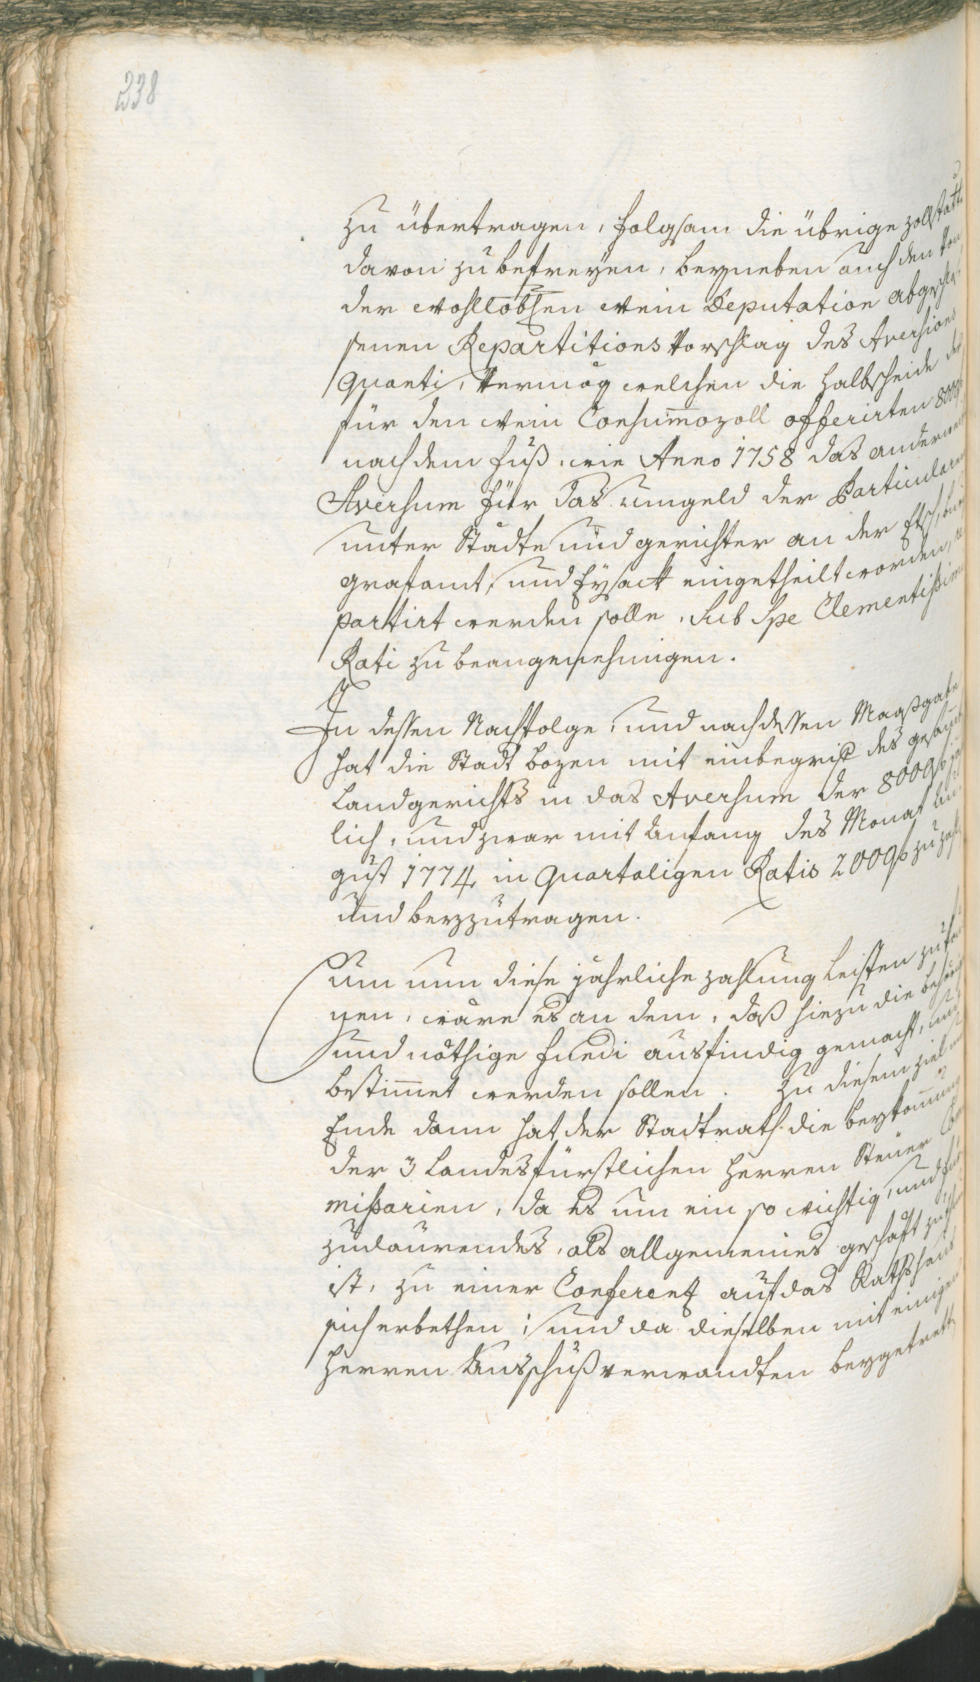 238
zu übertragen, folgsam die übrige zollstätt
davon zu befreyen, beyneben auch den von
der wohllobl.en Wein Deputation abgeschlos-
senen Repartitions Vorschlag des Aversional
Quanti, Vermög welchen die Halbscheide der
für den Wein Consummozoll offerirten 8000f
nach dem fuß, wie Anno 1758 das anderweite
Aversum für das umgeld der Particularn
unter Städte und gerichter an der Etsch, Burg-
grafamt, und Eysack eingetheilt worden, re-
partirt werden solle, Sub Spe Clementissimi
Rati zu beangenehmigen.
In dessen Nachfolge, und nach dessen Maaßgabe
hat die Stadt bozen mit einbegrif des gesamt
Landgerichts in das Aversum der 8000f jähr-
lich, und zwar mit Anfang des Monat Au-
gust 1774 in Quartaligen Ratis 200f zu zahlen
und beyzutragen.
Um nun diese jährliche zahlung leisten zu kön-
nen, wäre es an dem, daß hiezu die behörig
und nöthige fundi ausfindig gemacht, und
bestimmet werden sollen. Zu diesem ziel und
Ende dann hat der Stadtrath die beykommung
der 3 Landesfürstlichen Herren Steuer Com-
missarien, da es um ein so wichtig, und für-
zudaurendes, als allgemeines geschäft zu thun
ist, zu einer Conferenz auf das Rathshaus
sich erbethen; und da dieselben mit einigen
Herren Ausschußverwandten beygetretten